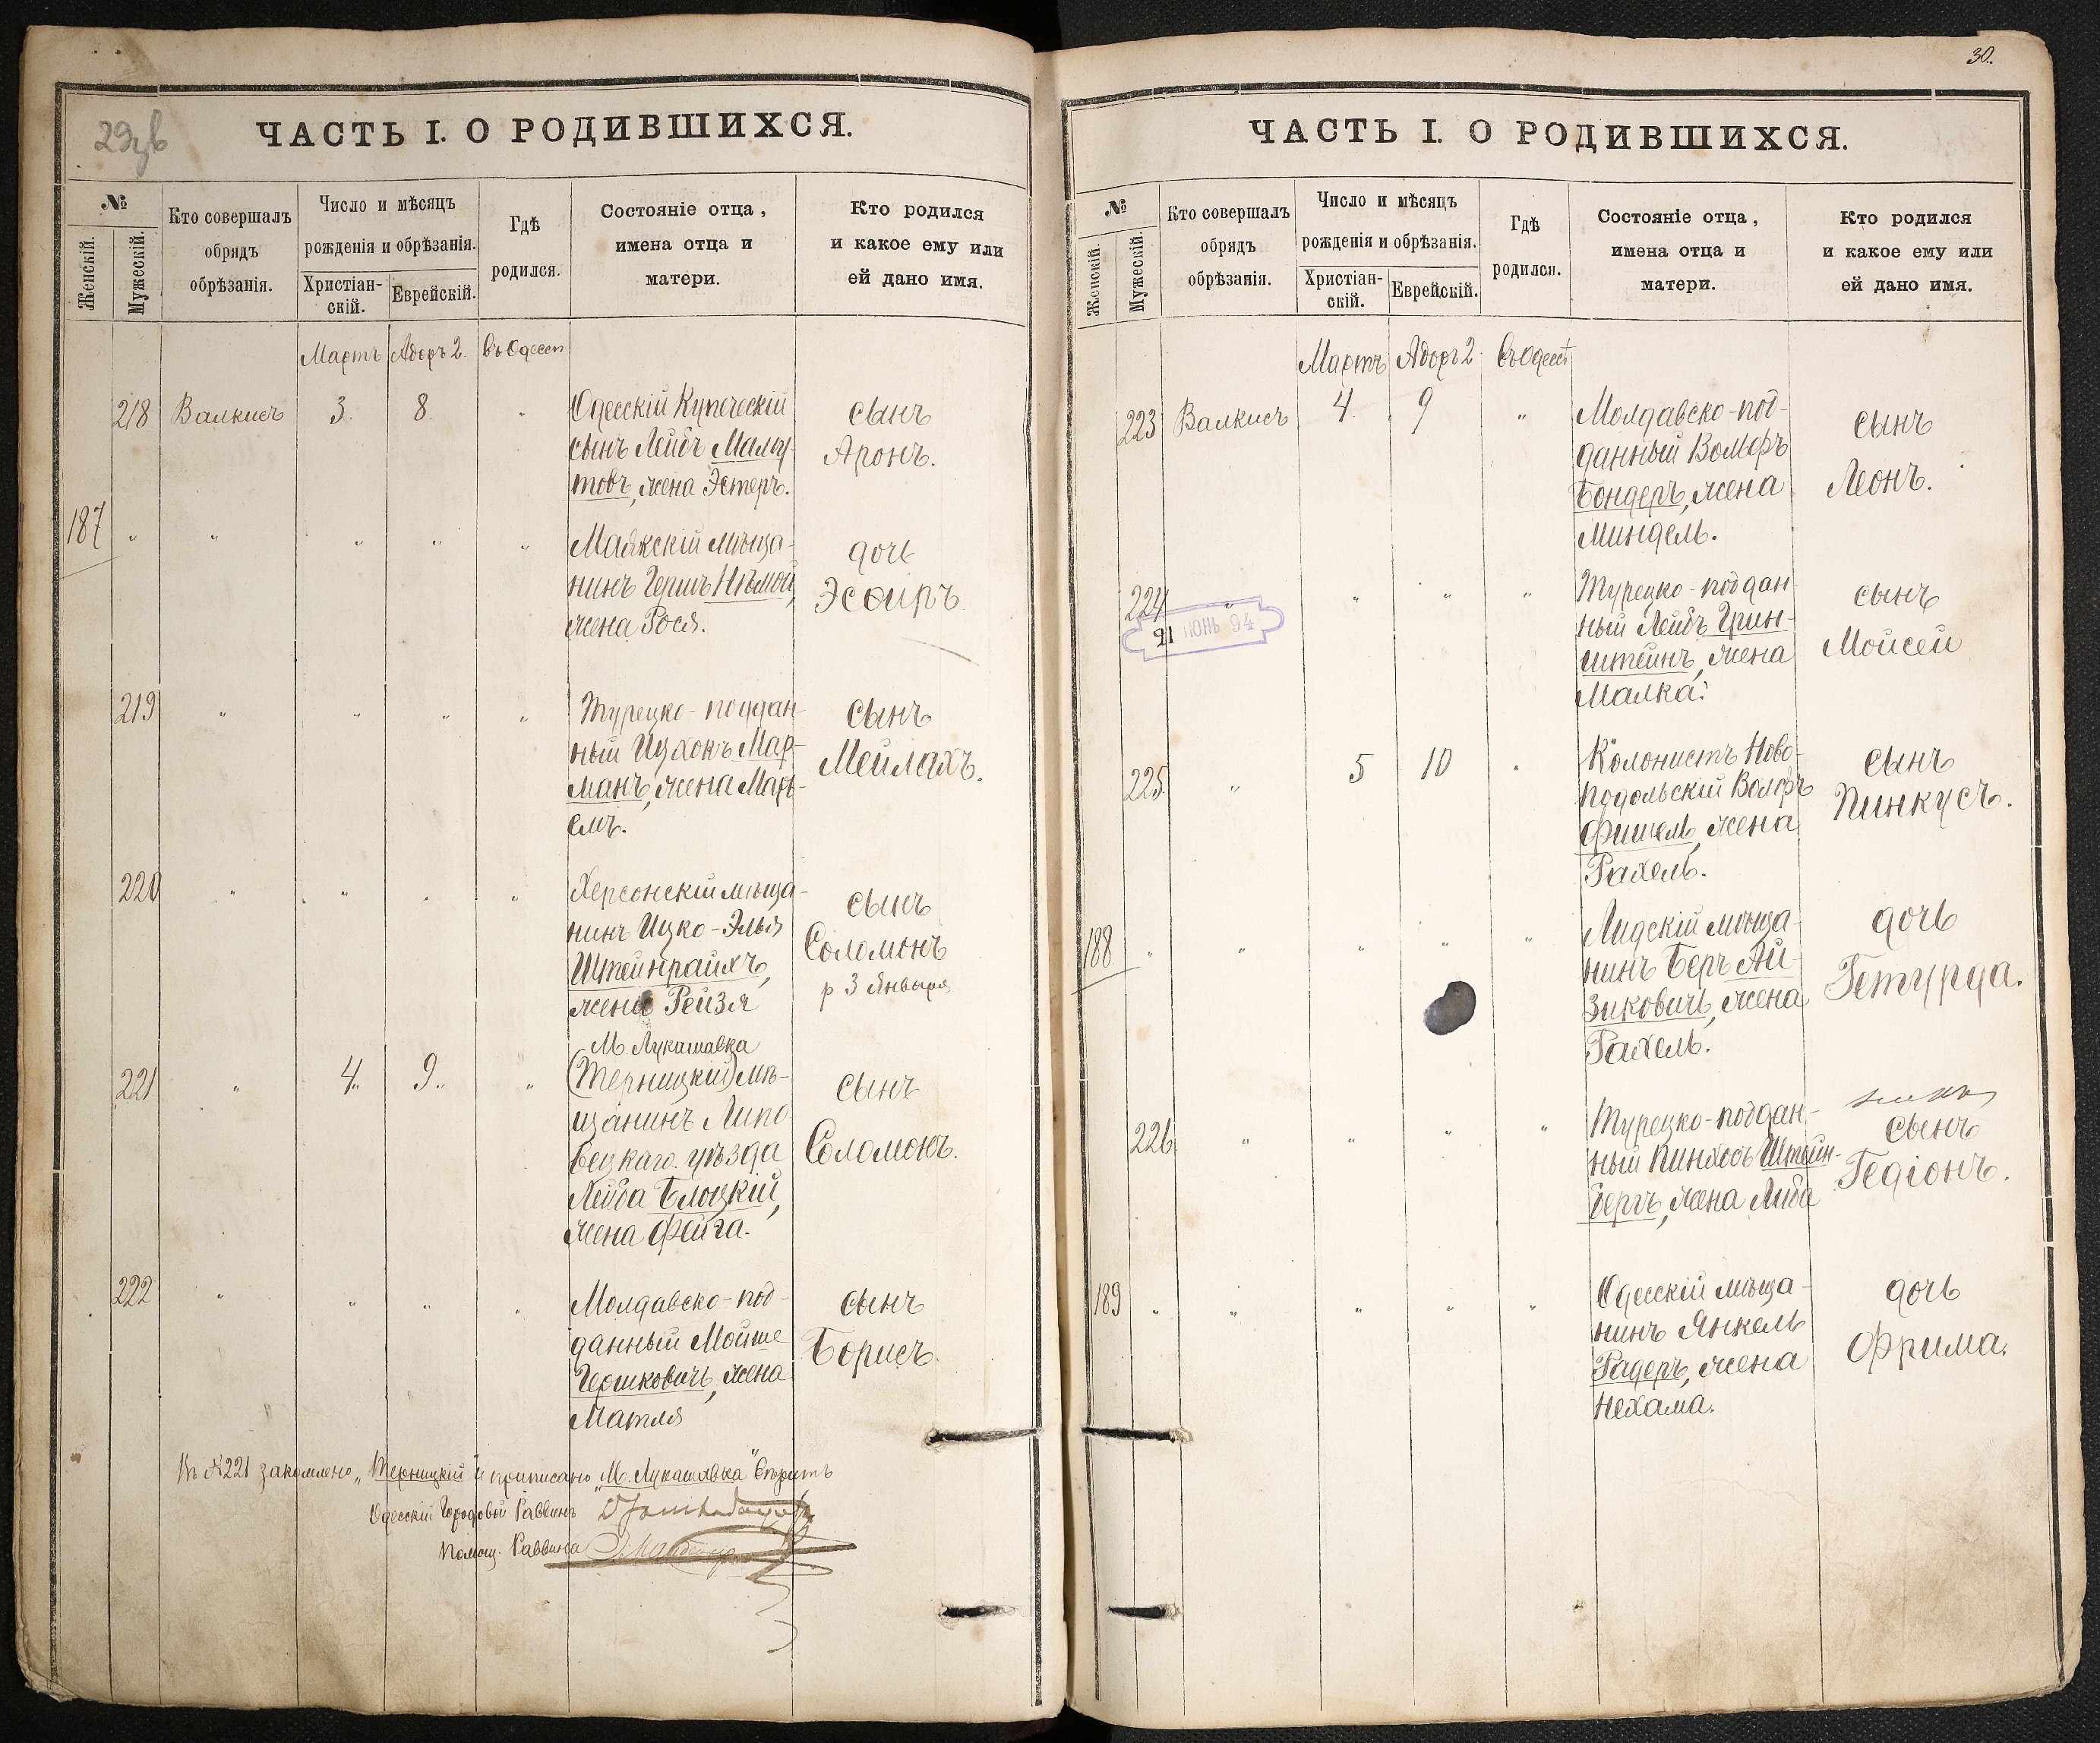 29об
ЧАСТЬ I. О РОДИВШИХСЯ.
№
Женскій.
Мужескій.
Кто совершалъ
обрядъ
обрѣзанія.
Число и мѣсяцъ
рожденія и обрѣзанія.
Христіан-
скій.
Еврейскій.
Гдѣ
родился.
Состояніе отца,
имена отца и
матери.
Кто родился
и какое ему или
ей дано имя.
Мартъ Адоръ 2. въ Одессѣ
218 Валкисъ 3. 8. " Одесскій Купеческій
сынъ Лейбъ Маму-
товъ, жена Эстеръ.
сынъ
Аронъ.
187 " " " " " Маякскій мѣща-
нинъ Гершъ Нѣмой,
жена Рося.
дочь
Эсѳиръ
219 " " " " Турецко-поддан-
ный Ицхокъ Мар-
манъ, жена Марь-
емъ.
сынъ
Мейлахъ.
220 " " " " Херсонскій мѣща-
нинъ Ицко-Элья
Штейнрайхъ,
жена Рейзя
сынъ
Соломонъ
р 3 Января
М. Лукашавка
221 " 4. 9. " (Терницкій) мѣ-
щанинъ Липо
вецкаго уѣзда
Лейба Блоцкій,
жена Фейга.
сынъ
Соломонъ.
222 " " " " Молдавско-под-
данный Мойше
Гершковичъ, жена
Матля
сынъ
Борисъ.
Въ №221 заковлено "Терницкій" и приписано "М. Лукашавка" вѣрить
Одесскій Городовой Раввинъ
Помощ. Раввина
30.
ЧАСТЬ I. О РОДИВШИХСЯ.
№
Женскій.
Мужескій.
Кто совершалъ
обрядъ
обрѣзанія.
Число и мѣсяцъ
рожденія и обрѣзанія.
Христіан-
скій.
Еврейскій.
Гдѣ
родился.
Состояніе отца,
имена отца и
матери.
Кто родился
и какое ему или
ей дано имя.
Мартъ Адоръ 2 въ Одессѣ
223 Валкисъ 4. 9 " Молдавско-под-
данный Вольфъ
Бондеръ, жена
Миндель.
сынъ
Леонъ.
224 " " " " Турецко-поддан
ный Лейбъ Грин-
штейнъ, жена
Малка.
сынъ
Мойсей
ІЮНЬ 94
225 " 5 10 " Колонистъ Ново-
подольскій Вольфъ
Фишель, жена
Рахель.
сынъ
Пинкусъ.
188 " " " " " Лидскій мѣща-
нинъ Беръ Ай-
зиковичъ, жена
Рахель.
дочь
Гетурда.
226 " " " " Турецко-поддан-
ный Пинхосъ Штейн-
бергъ, жена Либа
сынъ
Гедіонъ.
189 " " " " " Одесскій мѣща-
нинъ Янкель
Радеръ, жена
Нехама.
дочь
Фрима.